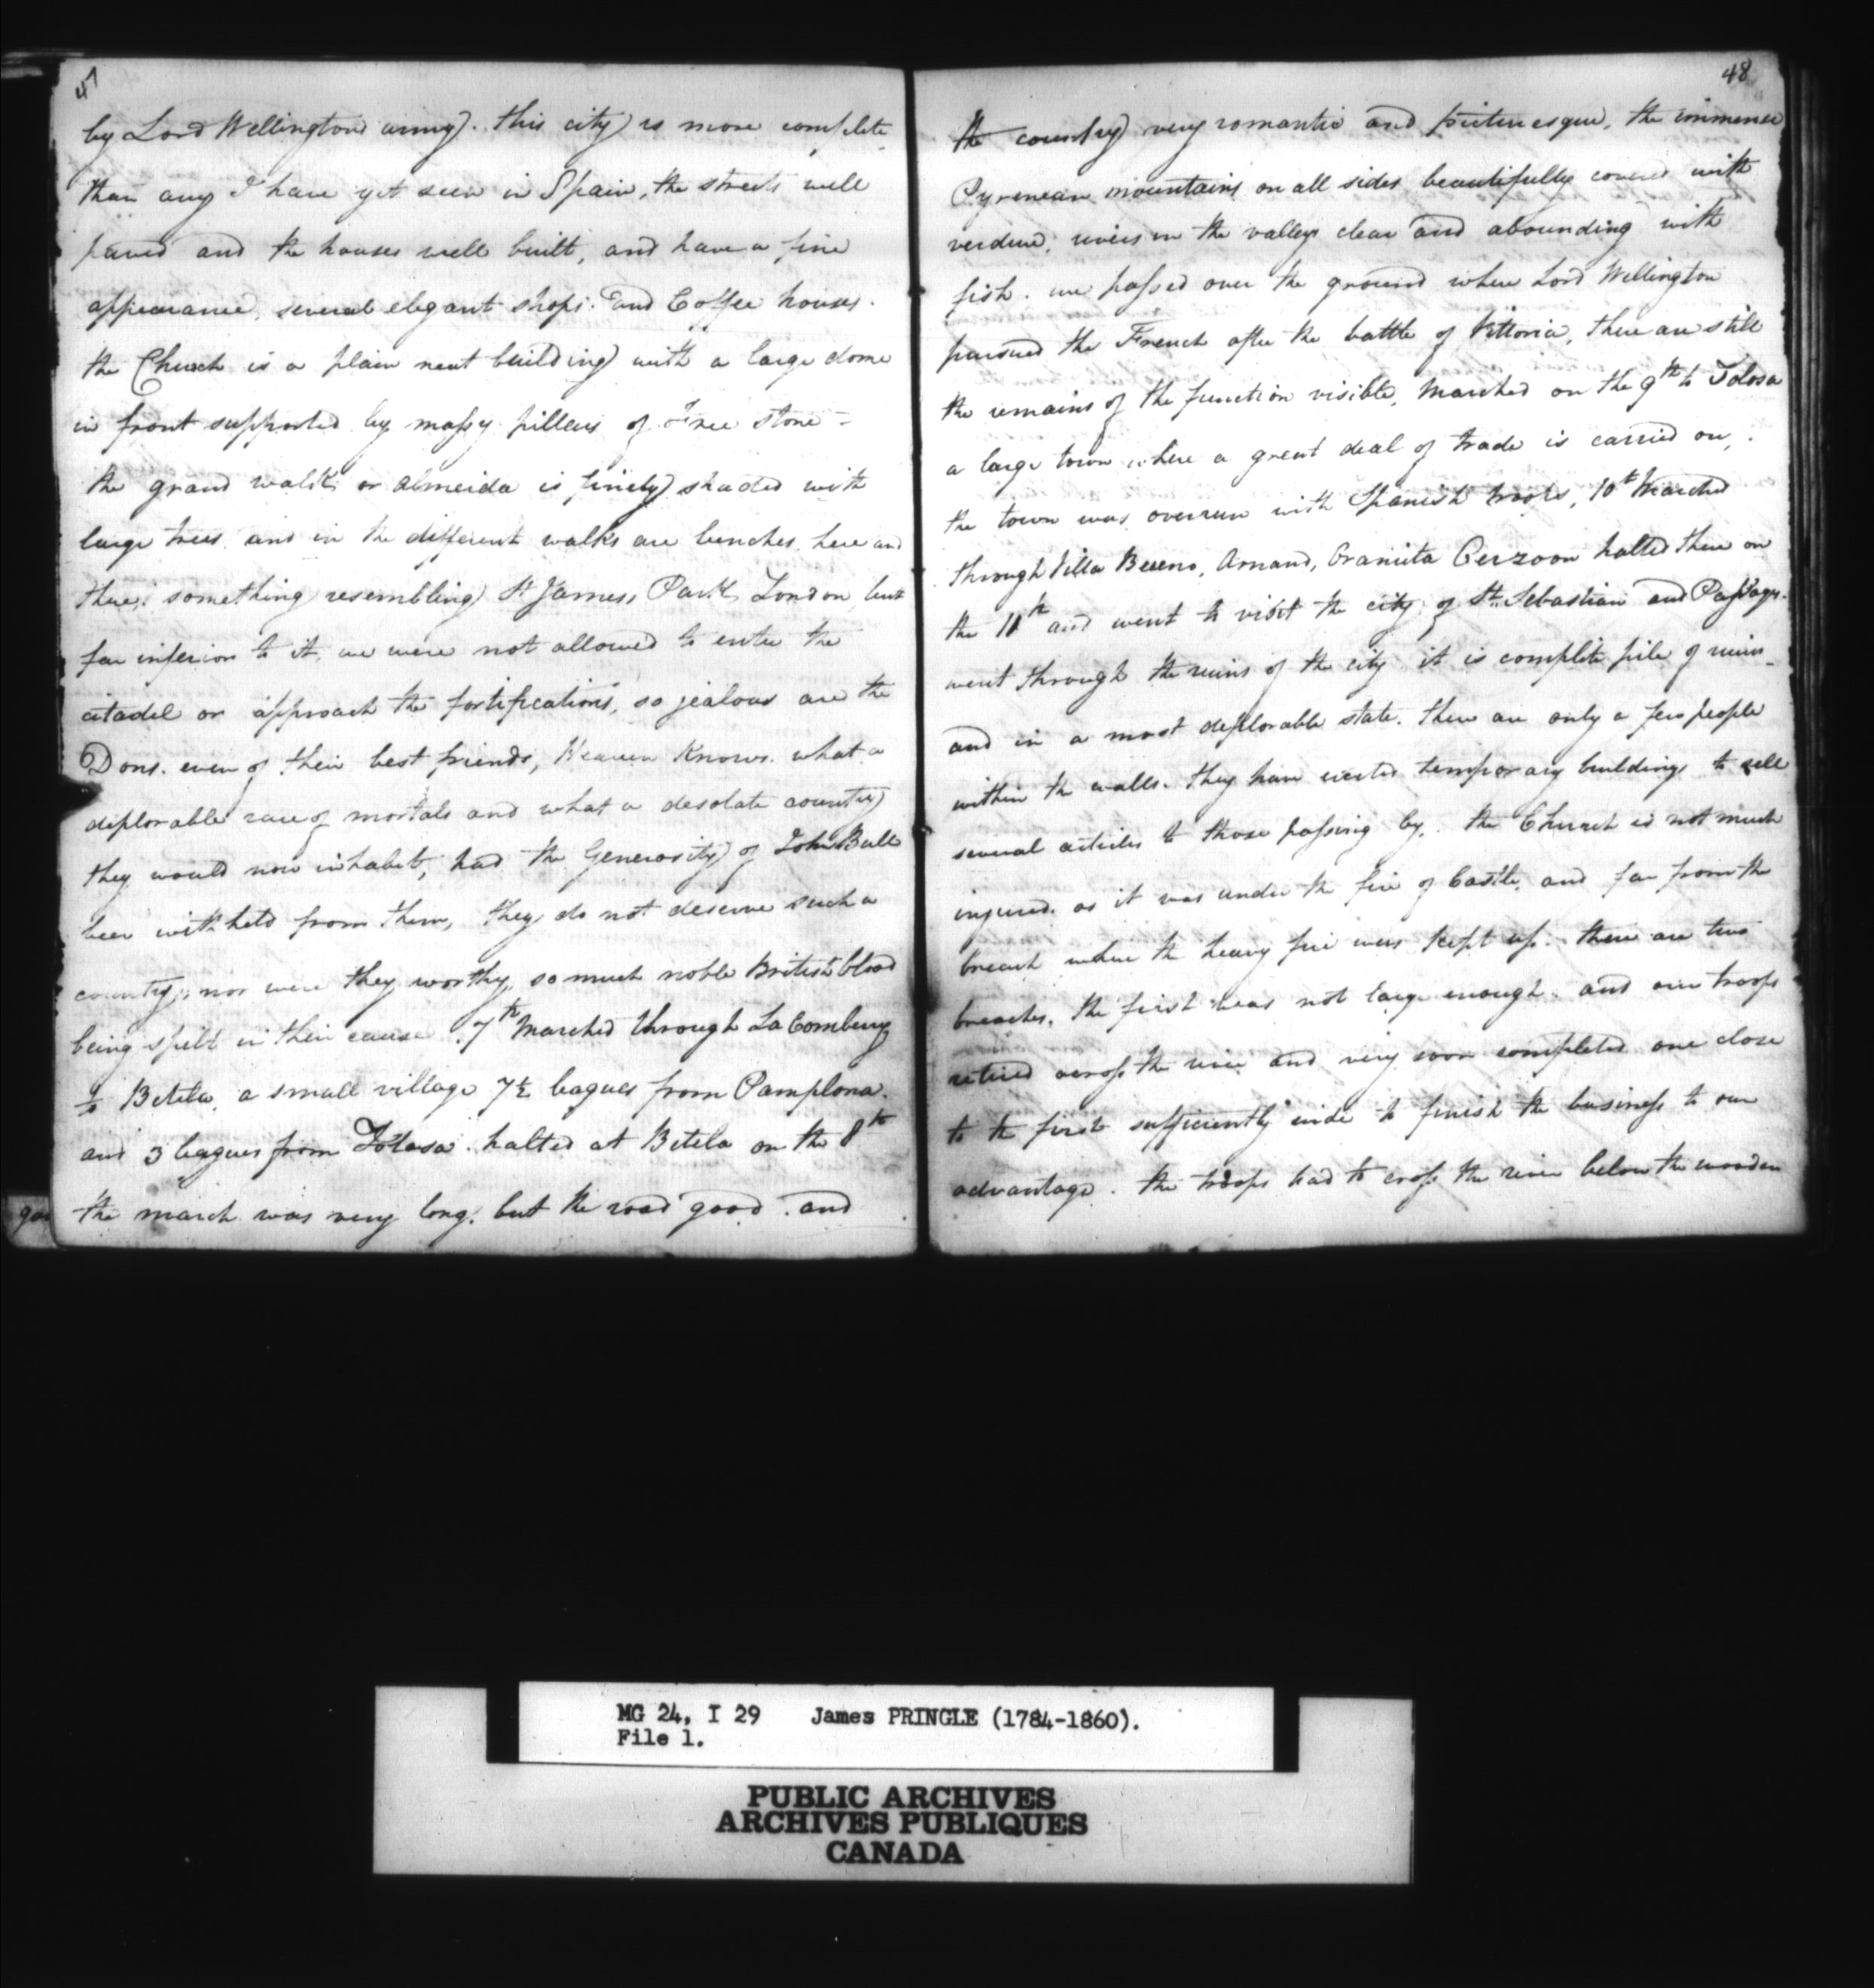 47
by Lord Wellingtons army. this city is more complete
than any I have yet seen in Spain, the streets well
paved and the houses well built, and have a fine
appearance, several elegant shops. and Coffee houses.
the Church is a plain neat building with a large dome
in front supported by massy pillars of Free stone =
the grand walk or Almeida is finely shaded with
large trees and in the different walks are benches here and
there, something resembling St James, Park, London, but
far inferior to it, we were not allowed to enter the
citadel or approach the fortifications, so jealous are the
Dons. even of their best friends, Heaven Knows. what a
deplorable race of mortals and what a desolate country
they would now inhabit, had the Generosity of John Bull
been withheld from them, they do not deserve such a
country, nor were they worthy, so much noble British blood
being spilt in their cause. 7th Marched through La
to Betela, a small village 7½ leagues from Pamplona.
and 3 leagues from Tolosa. halted at Betela on the 8th
the march was very long. but the road good. and
48
the country very romantic and picturesque, the immense
Pyrenean mountains on all sides beautifully covered with
verdure, rivers in the valleys clear and abounding with
fish. we passed over the ground where Lord Wellington
pursued the French after the battle of Vittoria, there are still
the remains of the function visible, Marched on the 9th to Tolosa
a large town where a great deal of trade is carried on,
the town was overrun with Spanish troops, 10th Marched
through Villa Arnand, halted there on
the 11th and went to visit the city of St. Sebastian and Passages.
went through the ruins of the city it is complete pile of ruins
and in a most deplorable state. there are only a few people
within the walls. they have erected temporary buildings to sell
several articles to those passing by. the Church is not much
injured. as it was under the fire of Castle, and far from the
breach where the heavy fire was kept up. there are two
breaches, the first was not large enough. and our troops
retired across the river and very soon completed one close
to the first sufficiently wide to finish the business to our
advantage. the troops had to cross the river below the wooden
MG 24, I 29 James PRINGLE (1784-1860).
File 1.
PUBLIC ARCHIVES
ARCHIVES PUBLIQUES
CANADA